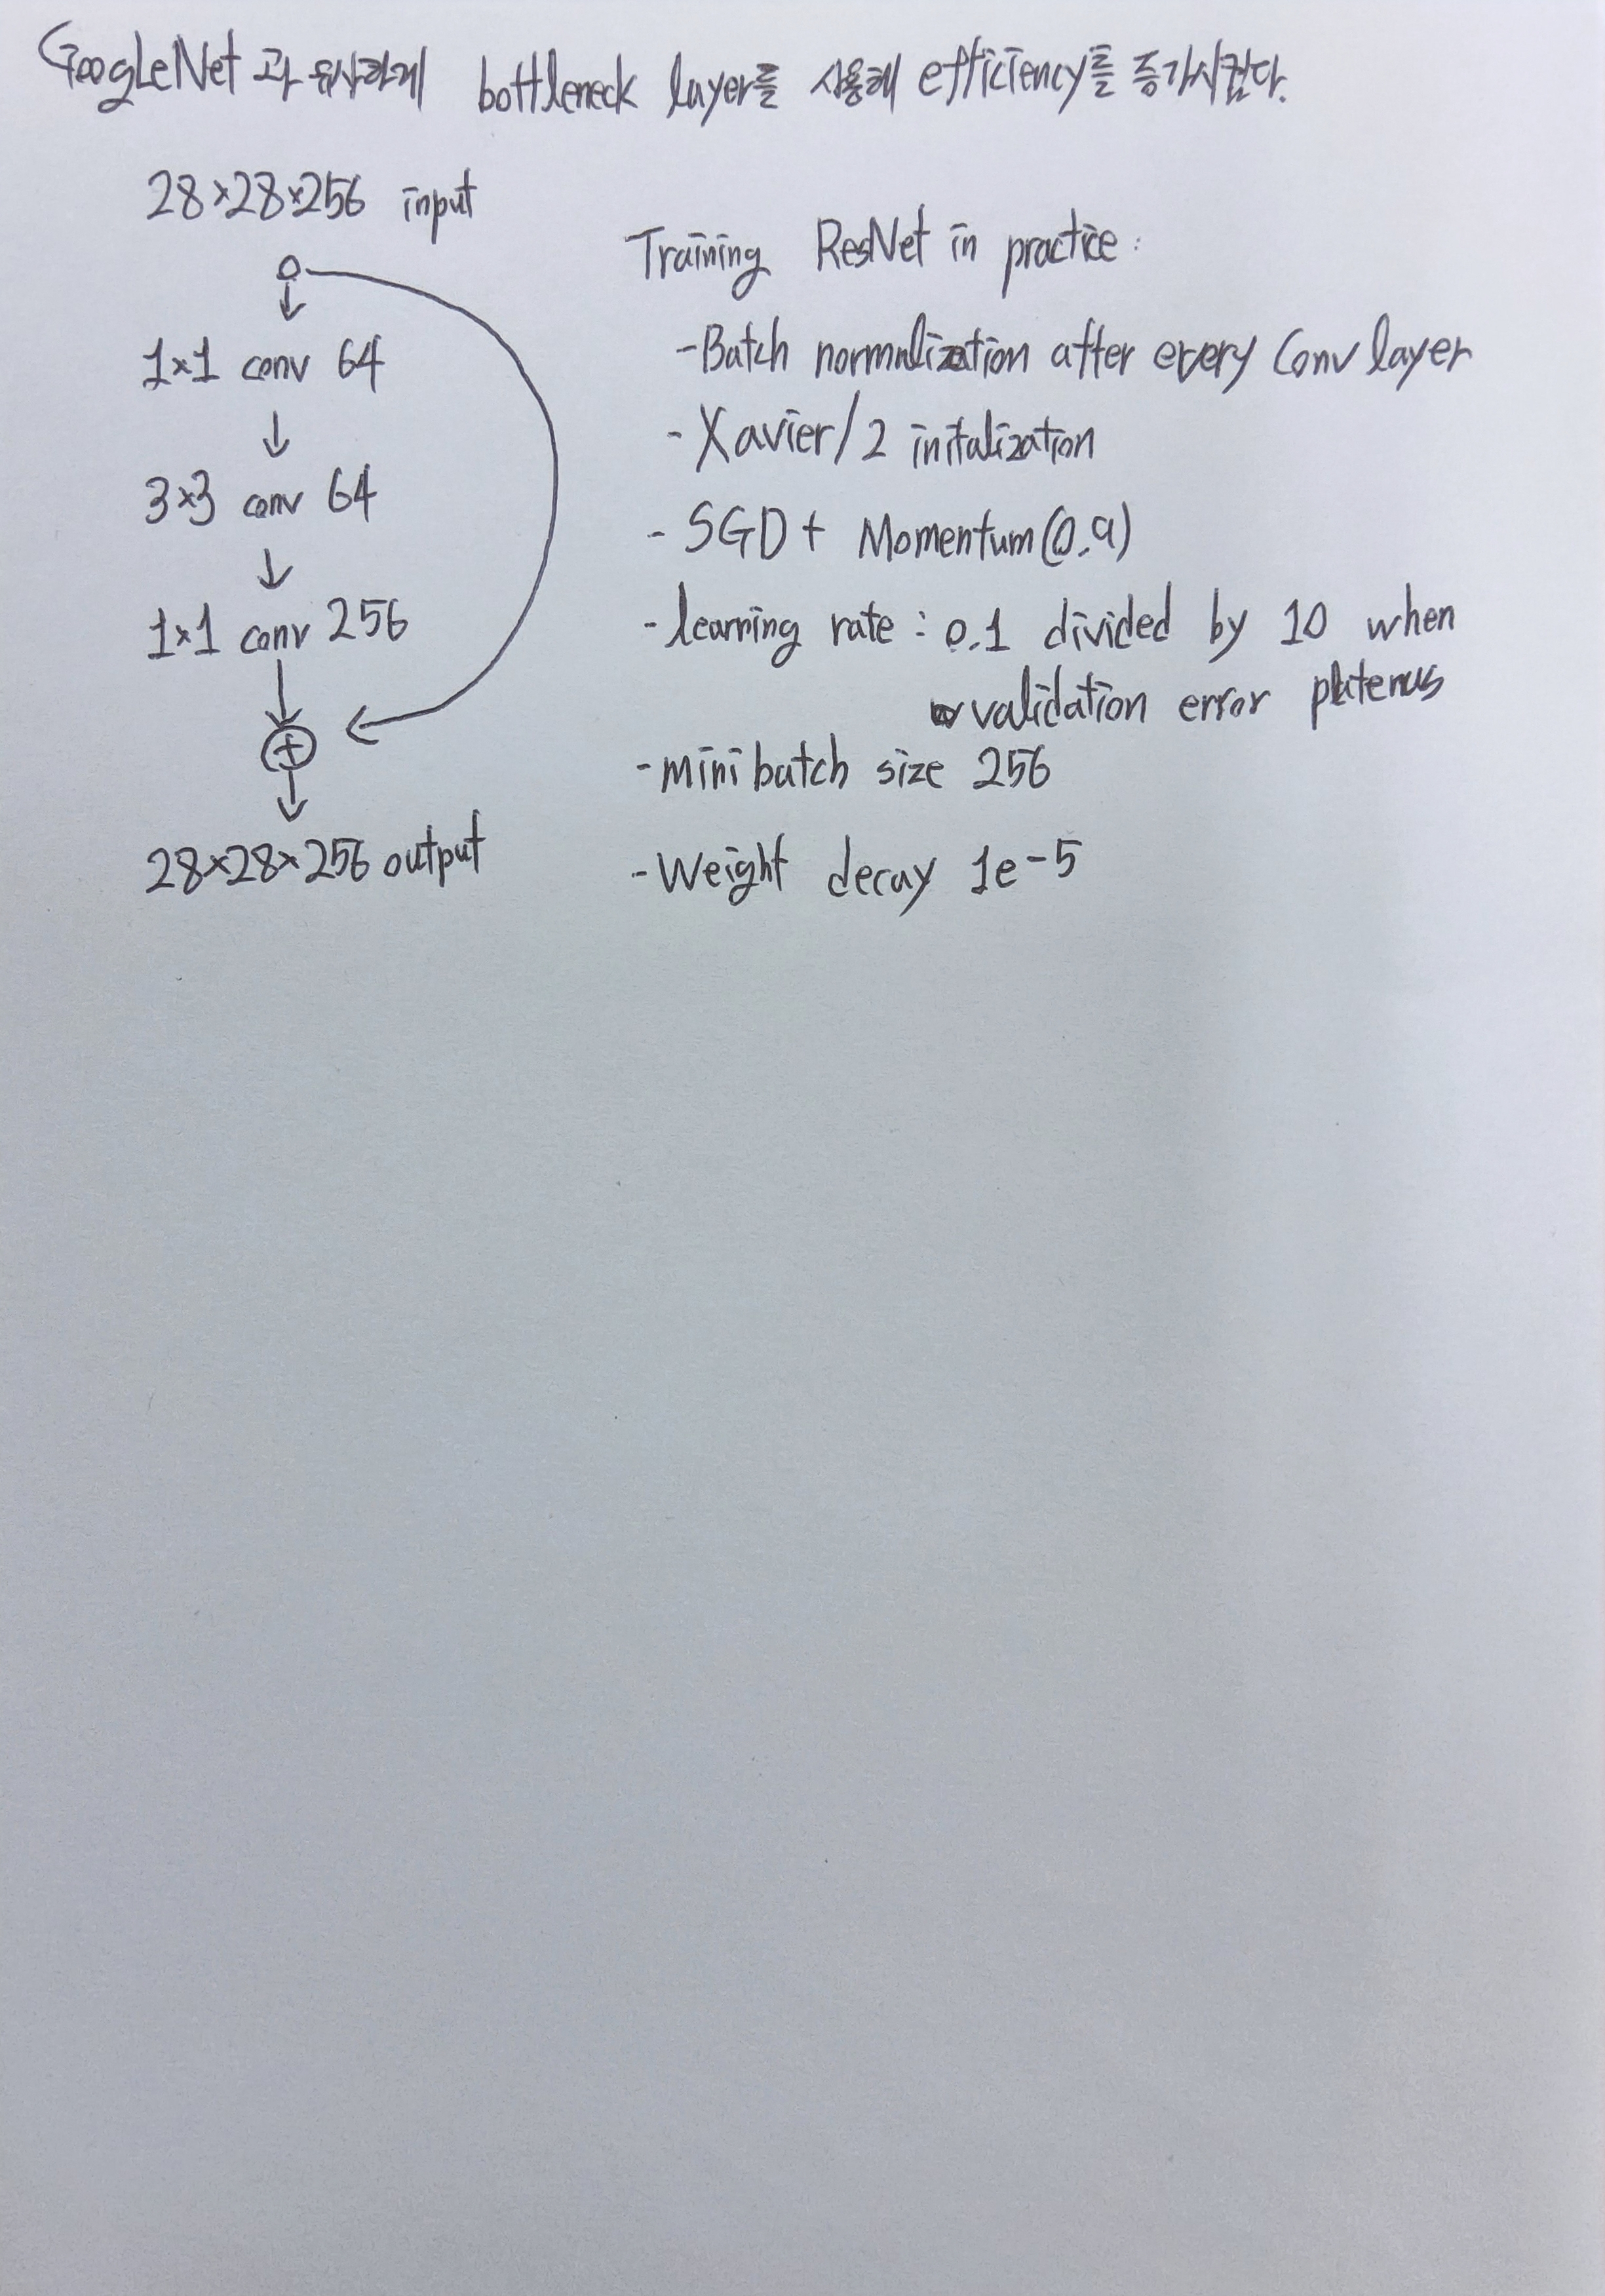 GoogLeNet과 유사하게 bottleneck layer를 사용해 efficiency를 증가시켰다.
28×28×256 input
1×1 conv 64
3×3 conv 64
1×1 conv 256
+
28×28×256 output
Training ResNet in practice:
-Batch normalization after every Conv layer
- Xavier/2 initalization
- SGD + Momentum(0.9)
- learning rate : 0.1 divided by 10 when
validation error platenus
-mini batch size 256
-Weight decay 1e-5